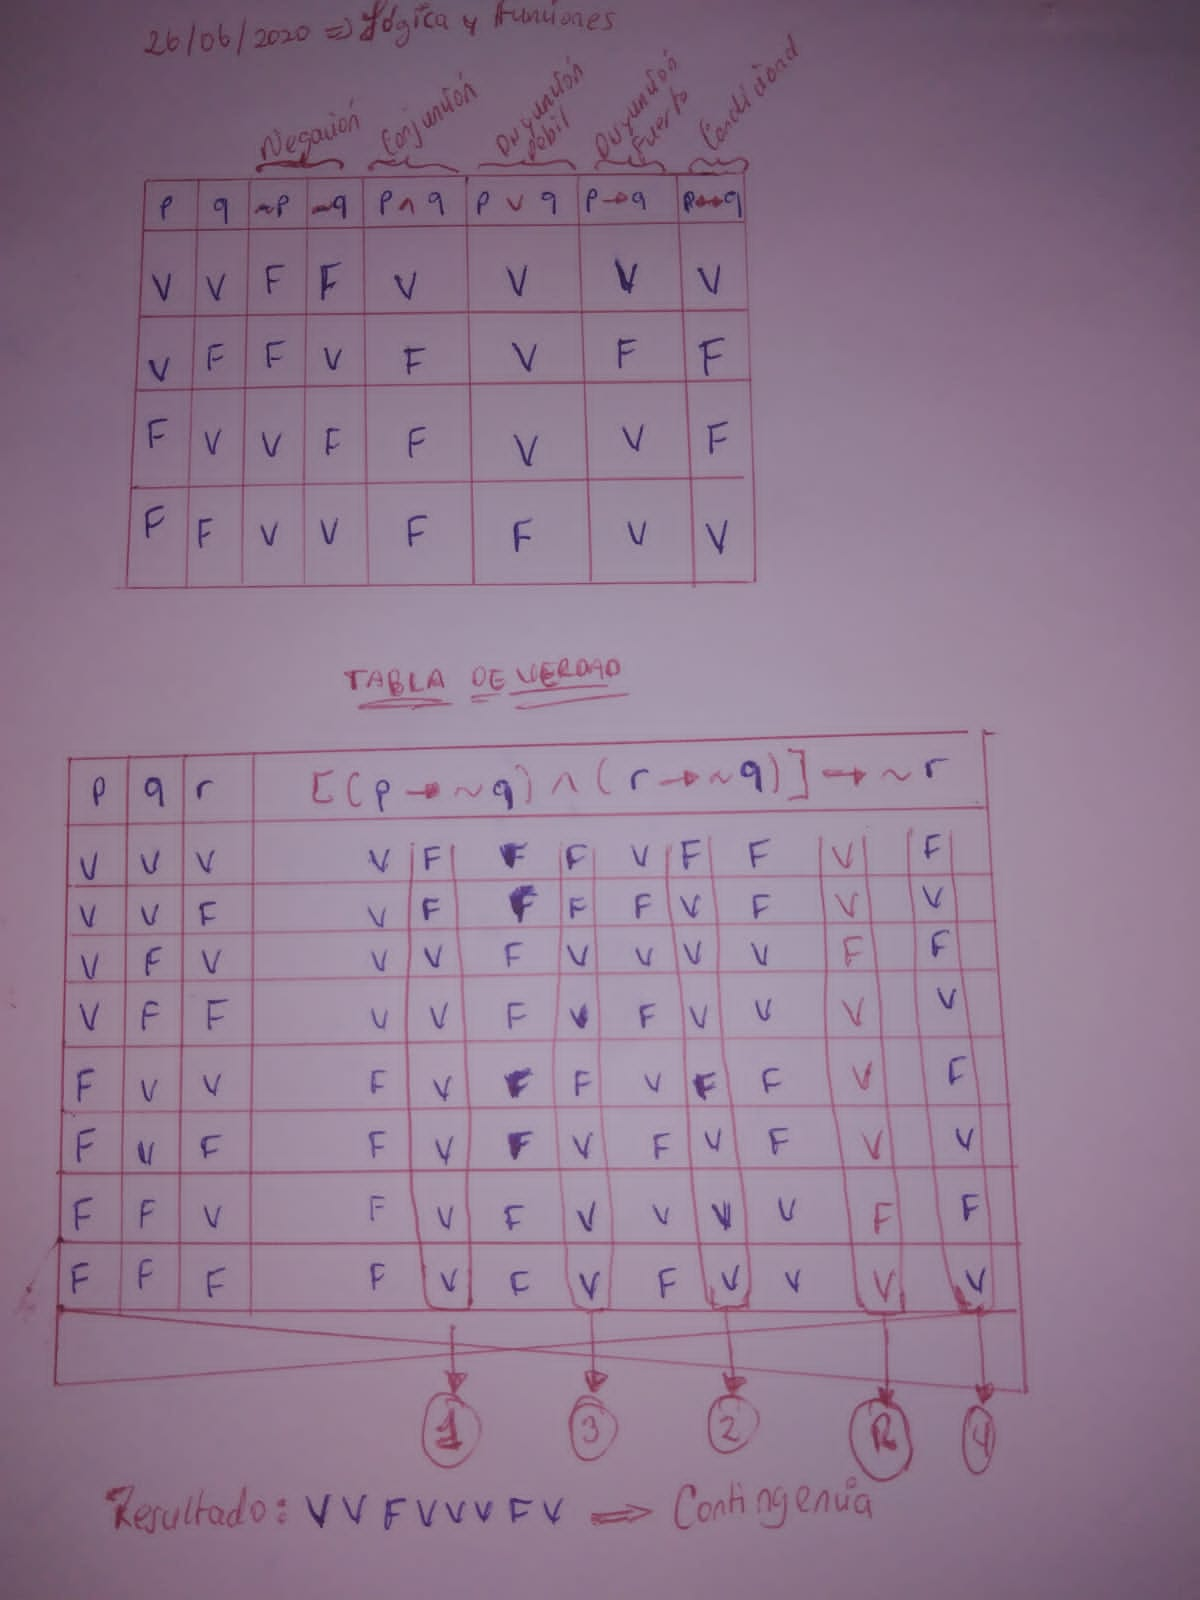 26/06/2020 => Lógica y funciones
Negación Conjunción Disyunción débil Disyunción fuerte Condicional
p q ~p ~q p ∧ q p ∨ q p → q p ↔ q
V V F F V V V V
V F F V F V F F
F V V F F V V F
F F V V F F V V
TABLA DE VERDAD
p q r [(p → ~q) ∧ (r → ~q)] → ~r
V V V V F F F V F F V F
V V F V F F F F V F V V
V F V V V F V V V V F F
V F F V V F V F V V V V
F V V F V F F V F F V F
F V F F V F V F V F V V
F F V F V F V V V V F F
F F F F V F V F V V V V
1 3 2 R 4
Resultado: V V F V V V F V => Contingencia